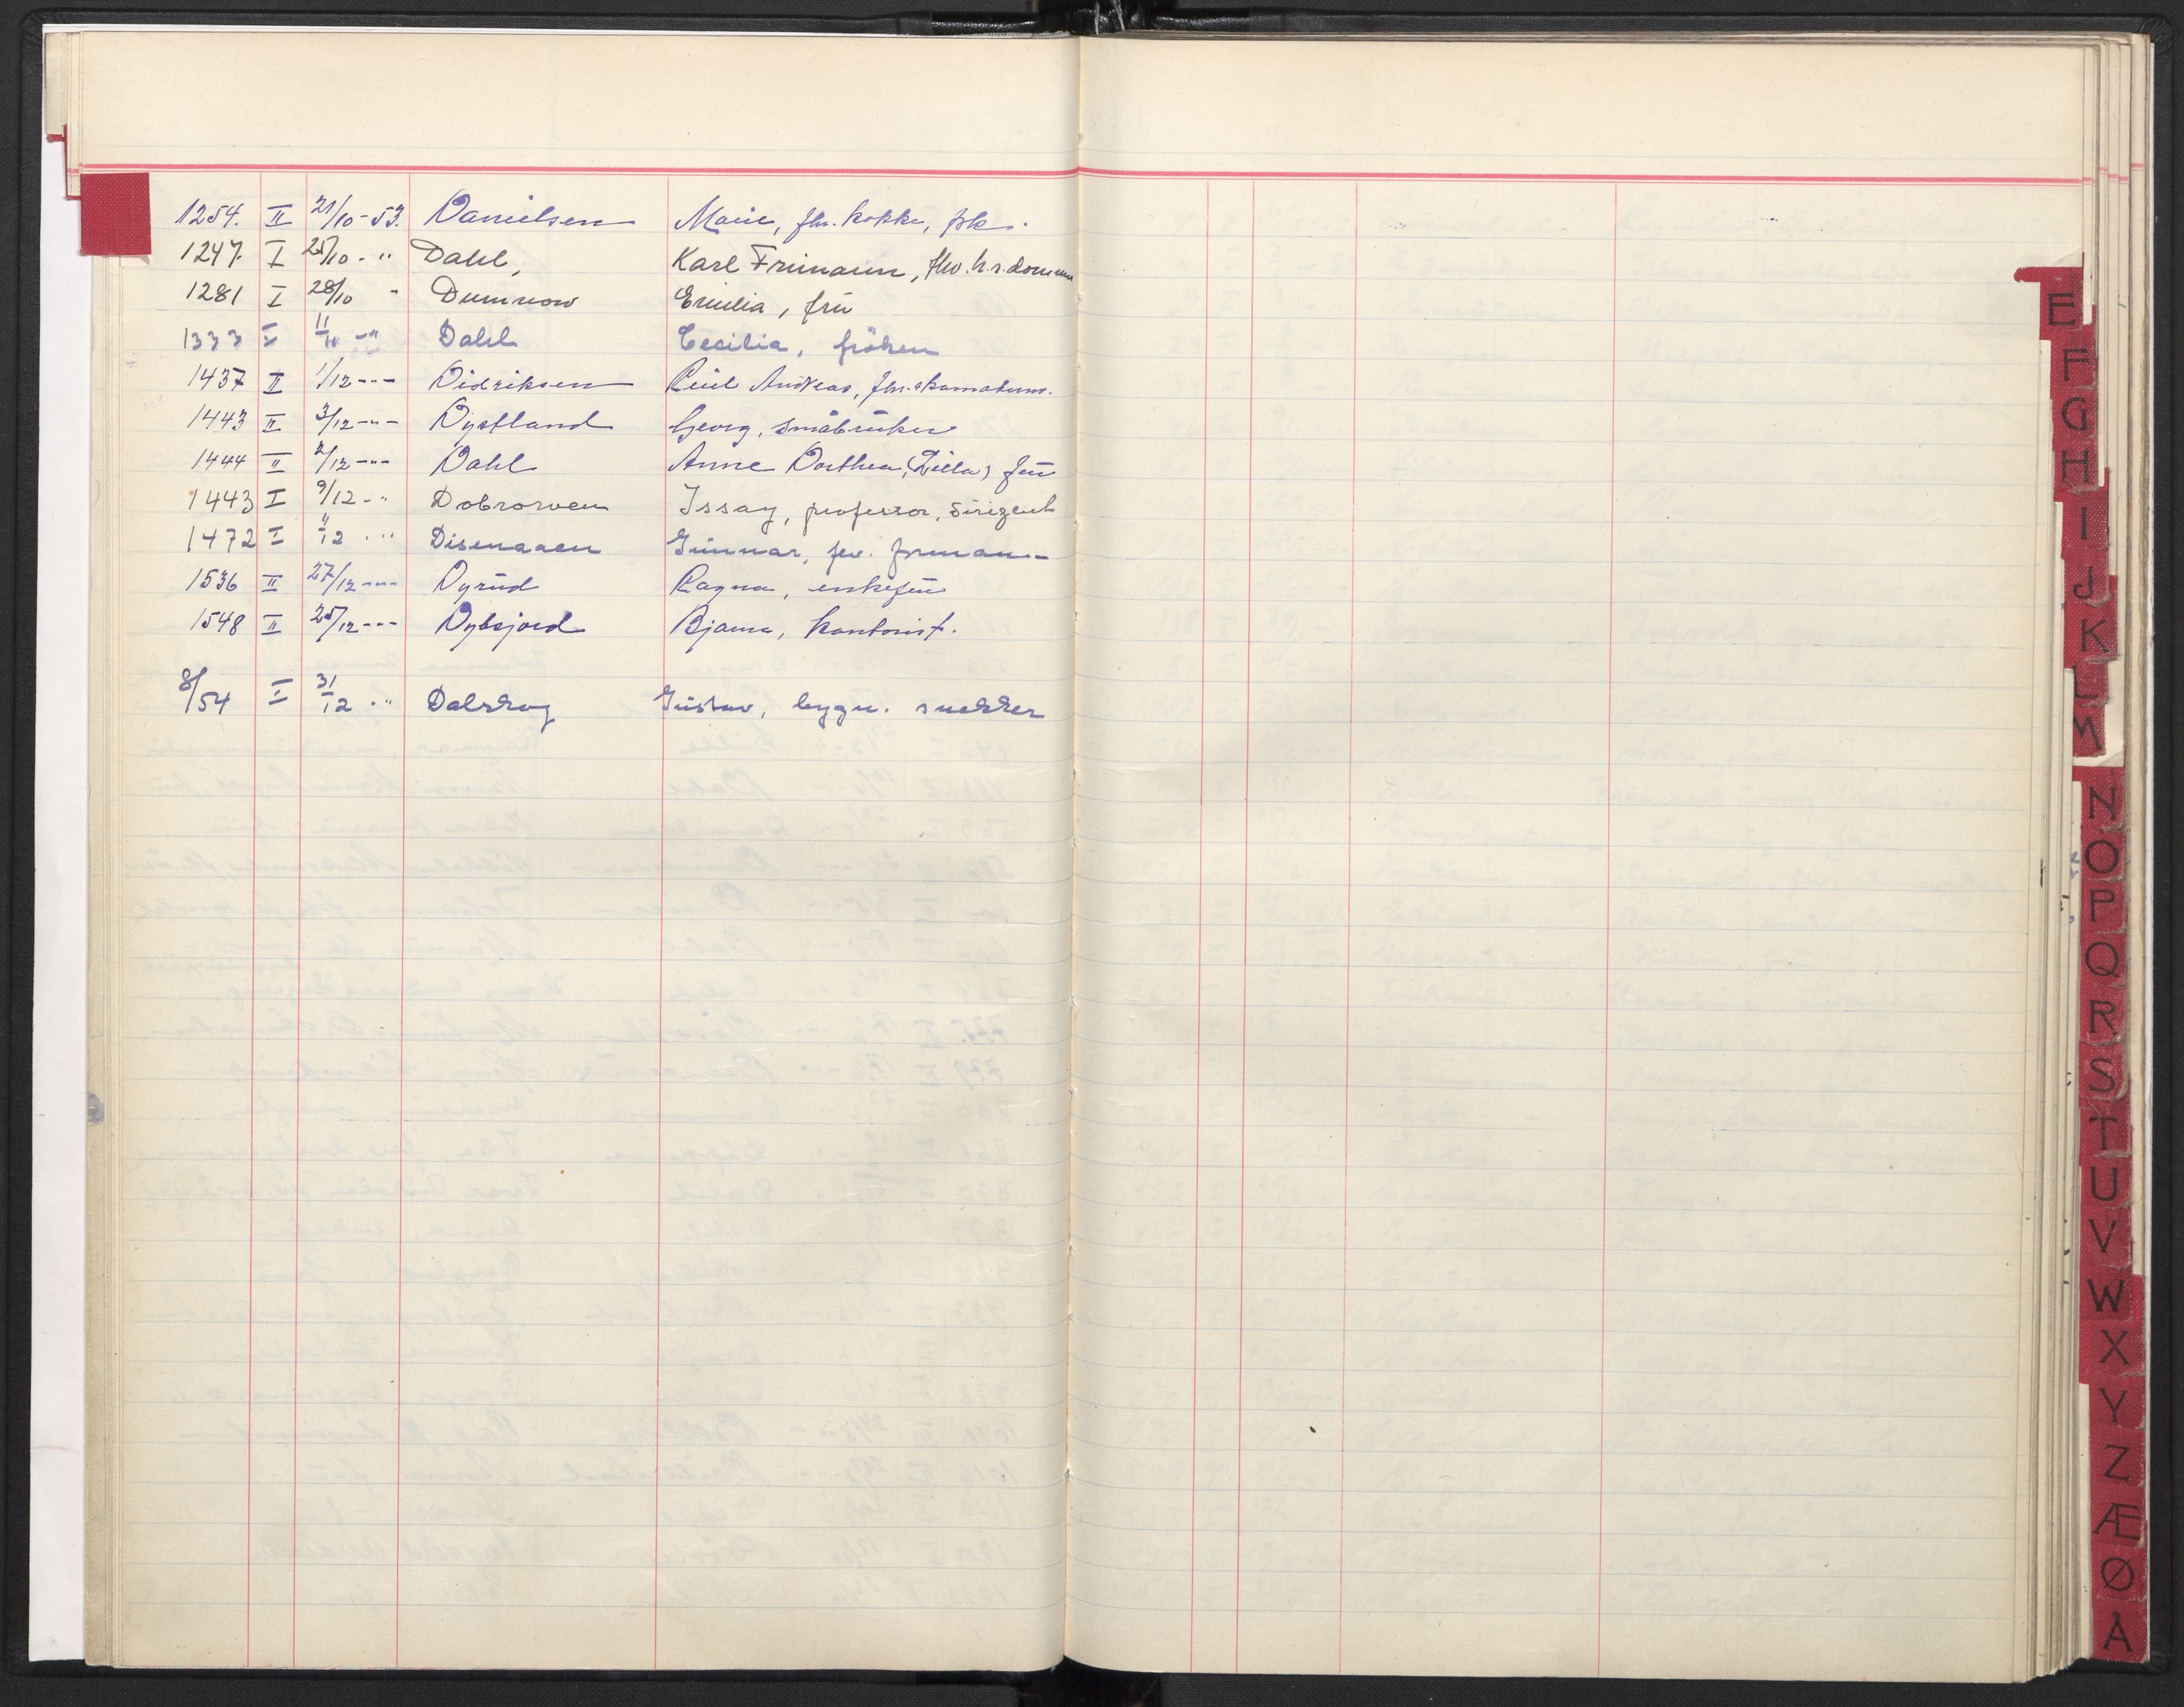 1254. II 21/10-53. Danielsen Marie, fhv. kokke, frk.
1247. I 25/10 - " Dahl, Karl Frimann, fhv. h.r.domm
1281 I 28/10 " Dumnow Emilia, frü
1333 I 11/11 -" Dahl Cecilia, fröken
1437 II 1/12 -"- Didriksen Emil Andreas, fhv.
1443 II 3/12 -"- Dystland Georg, småbrüker
1444 II 2/12 -"- Dahl Anne Dorthea, (Lilla) frü
1443 I 9/12 - " Dobrowen Issay, professor, dirigent
1472 I 11/12 . " Disenaaen Günnar, fev. formann
1536 II 27/12 -"- Dyrüd Ragna, enkefrü
1548 II 25/12 -"- Dybsjord Bjarne, kontorist.
8/54 I 31/12 . " Dalskog Güstav, bygn. snekker
E
F
G
H
I
J
K
L
M
N
O
P
Q
R
S
T
U
V
W
X
Y
Z
Æ
Ø
Å